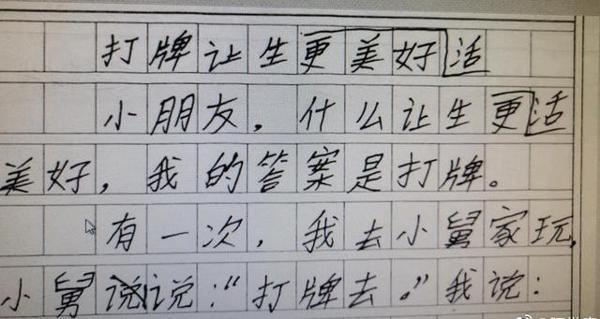 打牌让生更美好活
小朋友，什么让生更活
美好，我的答案是打牌。
有一次，我去小舅家玩，
小舅说说："打牌去。"我说：